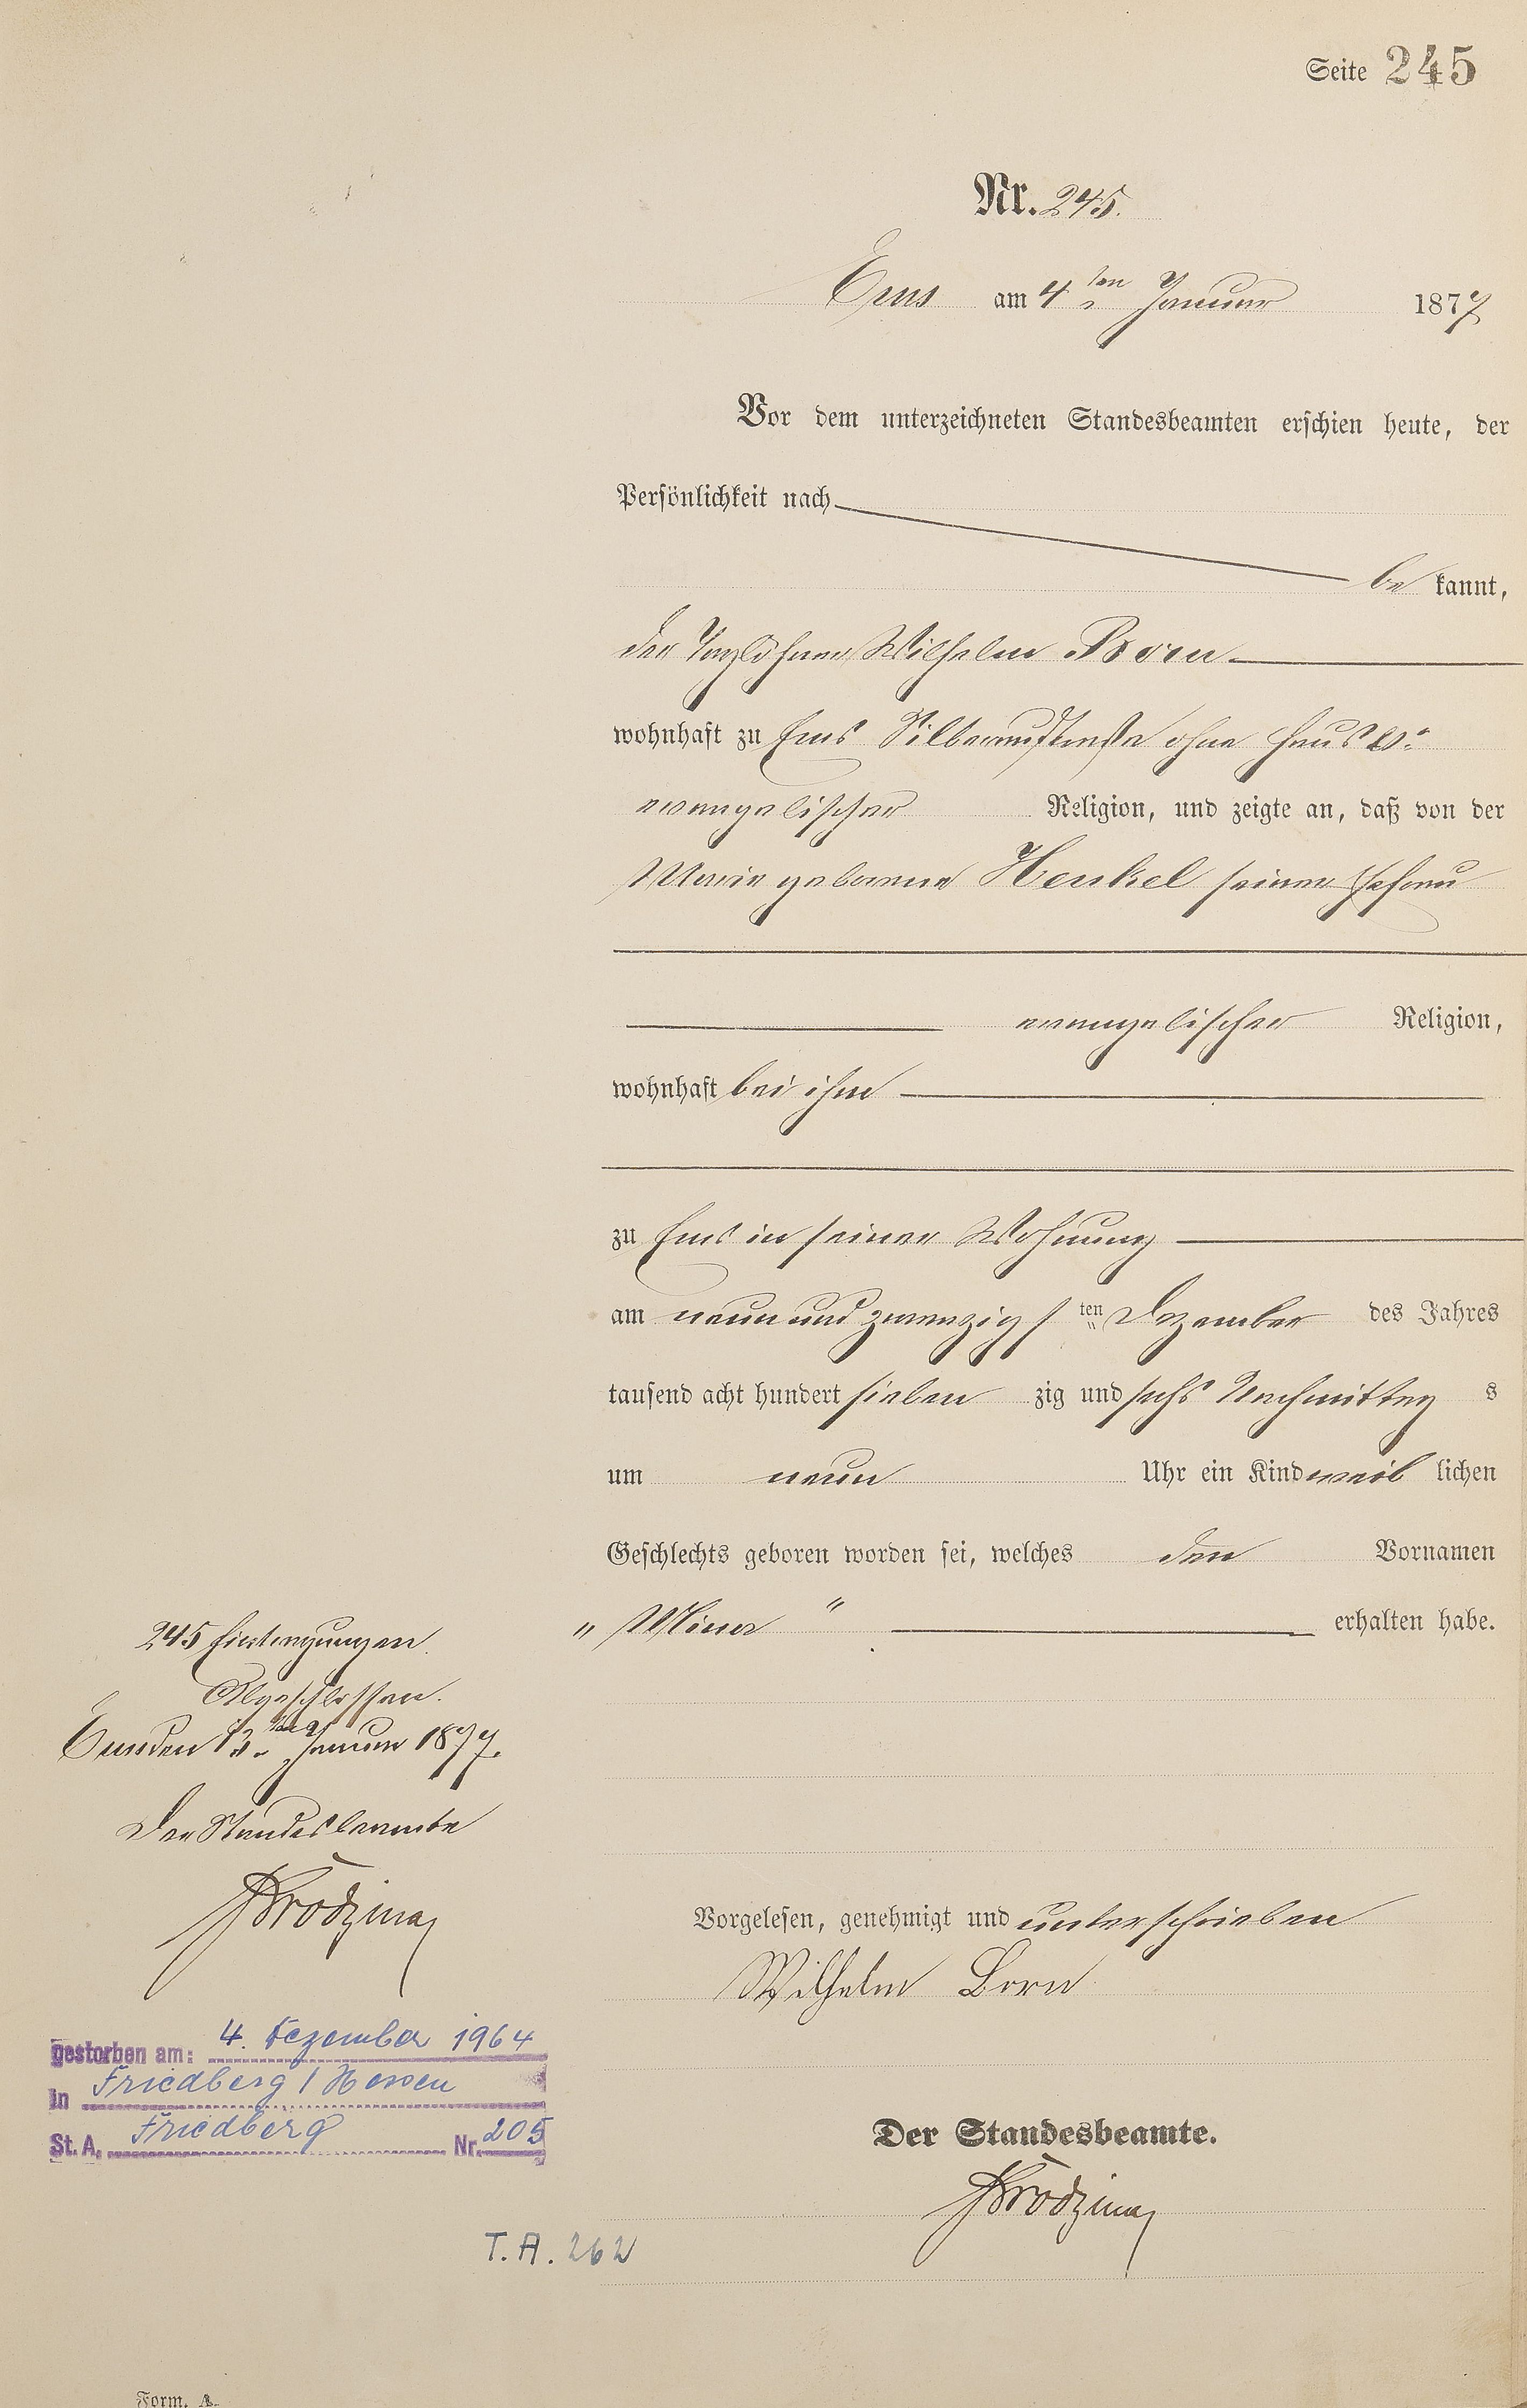 Seite 245
Nr. 245.
Ems am 4ten Januar 1877
Vor dem unterzeichneten Standesbeamten erschien heute, der
Persönlichkeit nach
be kannt,
der Taglöhner Wilhelm Born
wohnhaft zu Ems Silberaustraße ohne Haus No
evangelischer Religion, und zeigte an, daß von der
Marie geborene Henkel seiner Ehefrau
evangelischer Religion,
wohnhaft bei ihm
zu Ems in seiner Wohnung
am neun und zwanzigs ten Dezember des Jahres
tausend acht hundert sieben zig und sechs Nachmittag s
um neun Uhr ein Kind weib lichen
Geschlechts geboren worden sei, welches den Vornamen
„ Mina “ erhalten habe.
245 Eintragungen.
Abgeschlossen.
Ems den Januar 1877.
Der Standesbeamte
Vorgelesen, genehmigt und unterschrieben
Wilhelm Born
gestorben am: 4. Dezember 1964
in Friedberg / Hessen
St. A. Friedberg Nr. 205
Der Standesbeamte.
T. A. 262
Form. A.